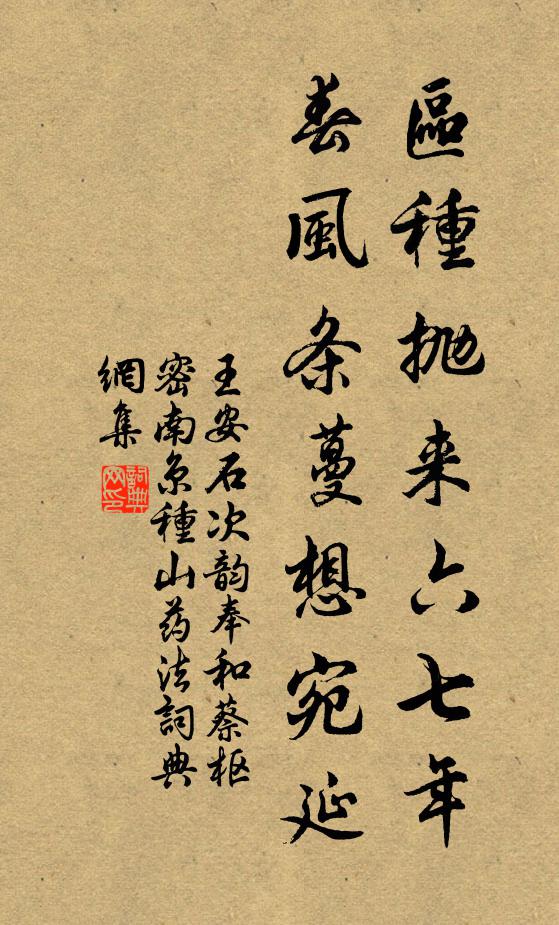 區種抛来六七年
春風条蔓想宛延
王安石次韵奉和蔡枢
密南京種山药法詞典
網集
詞典
网印